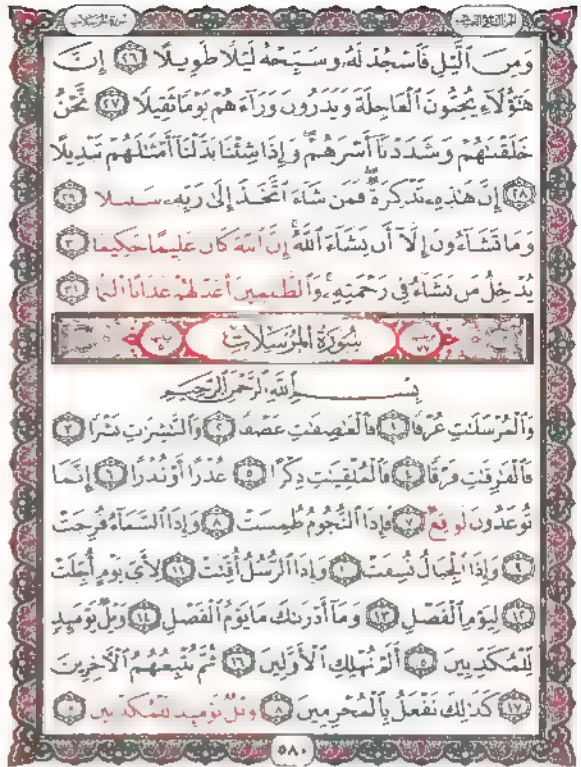 سورة المرسلات
الجزء التاسع والعشرون
وَمِنَ ٱلَّيۡلِ فَٱسۡجُدۡ لَهُۥ وَسَبِّحۡهُ لَيۡلٗا طَوِيلًا ٢٦ إِنَّ
هَٰٓؤُلَآءِ يُحِبُّونَ ٱلۡعَاجِلَةَ وَيَذَرُونَ وَرَآءَهُمۡ يَوۡمٗا ثَقِيلٗا ٢٧ نَّحۡنُ
خَلَقۡنَٰهُمۡ وَشَدَدۡنَآ أَسۡرَهُمۡۖ وَإِذَا شِئۡنَا بَدَّلۡنَآ أَمۡثَٰلَهُمۡ تَبۡدِيلًا
٢٨ إِنَّ هَٰذِهِۦ تَذۡكِرَةٞۖ فَمَن شَآءَ ٱتَّخَذَ إِلَىٰ رَبِّهِۦ سَبِيلٗا ٢٩
وَمَا تَشَآءُونَ إِلَّآ أَن يَشَآءَ ٱللَّهُۚ إِنَّ ٱللَّهَ كَانَ عَلِيمًا حَكِيمٗا ٣٠
يُدۡخِلُ مَن يَشَآءُ فِي رَحۡمَتِهِۦۚ وَٱلظَّٰلِمِينَ أَعَدَّ لَهُمۡ عَذَابًا أَلِيمَۢا ٣١
سُورَةُ المُرۡسَلَاتِ
بِسۡمِ ٱللَّهِ ٱلرَّحۡمَٰنِ ٱلرَّحِيمِ
وَٱلۡمُرۡسَلَٰتِ عُرۡفٗا ١ فَٱلۡعَٰصِفَٰتِ عَصۡفٗا ٢ وَٱلنَّٰشِرَٰتِ نَشۡرٗا ٣
فَٱلۡفَٰرِقَٰتِ فَرۡقٗا ٤ فَٱلۡمُلۡقِيَٰتِ ذِكۡرًا ٥ عُذۡرًا أَوۡ نُذۡرًا ٦ إِنَّمَا
تُوعَدُونَ لَوَٰقِعٞ ٧ فَإِذَا ٱلنُّجُومُ طُمِسَتۡ ٨ وَإِذَا ٱلسَّمَآءُ فُرِجَتۡ
٩ وَإِذَا ٱلۡجِبَالُ نُسِفَتۡ ١٠ وَإِذَا ٱلرُّسُلُ أُقِّتَتۡ ١١ لِأَيِّ يَوۡمٍ أُجِّلَتۡ
١٢ لِيَوۡمِ ٱلۡفَصۡلِ ١٣ وَمَآ أَدۡرَىٰكَ مَا يَوۡمُ ٱلۡفَصۡلِ ١٤ وَيۡلٞ يَوۡمَئِذٖ
لِّلۡمُكَذِّبِينَ ١٥ أَلَمۡ نُهۡلِكِ ٱلۡأَوَّلِينَ ١٦ ثُمَّ نُتۡبِعُهُمُ ٱلۡأٓخِرِينَ
١٧ كَذَٰلِكَ نَفۡعَلُ بِٱلۡمُجۡرِمِينَ ١٨ وَيۡلٞ يَوۡمَئِذٖ لِّلۡمُكَذِّبِينَ ١٩
٥٨٠